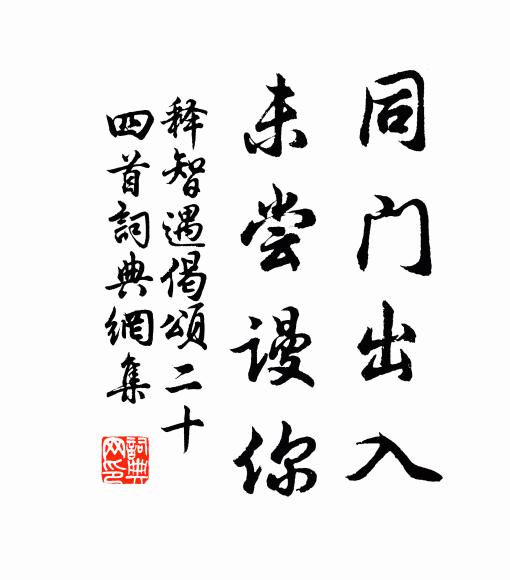 同门出入
未尝谩你
释智遇偈颂二十
四首詞典網集
詞典网印